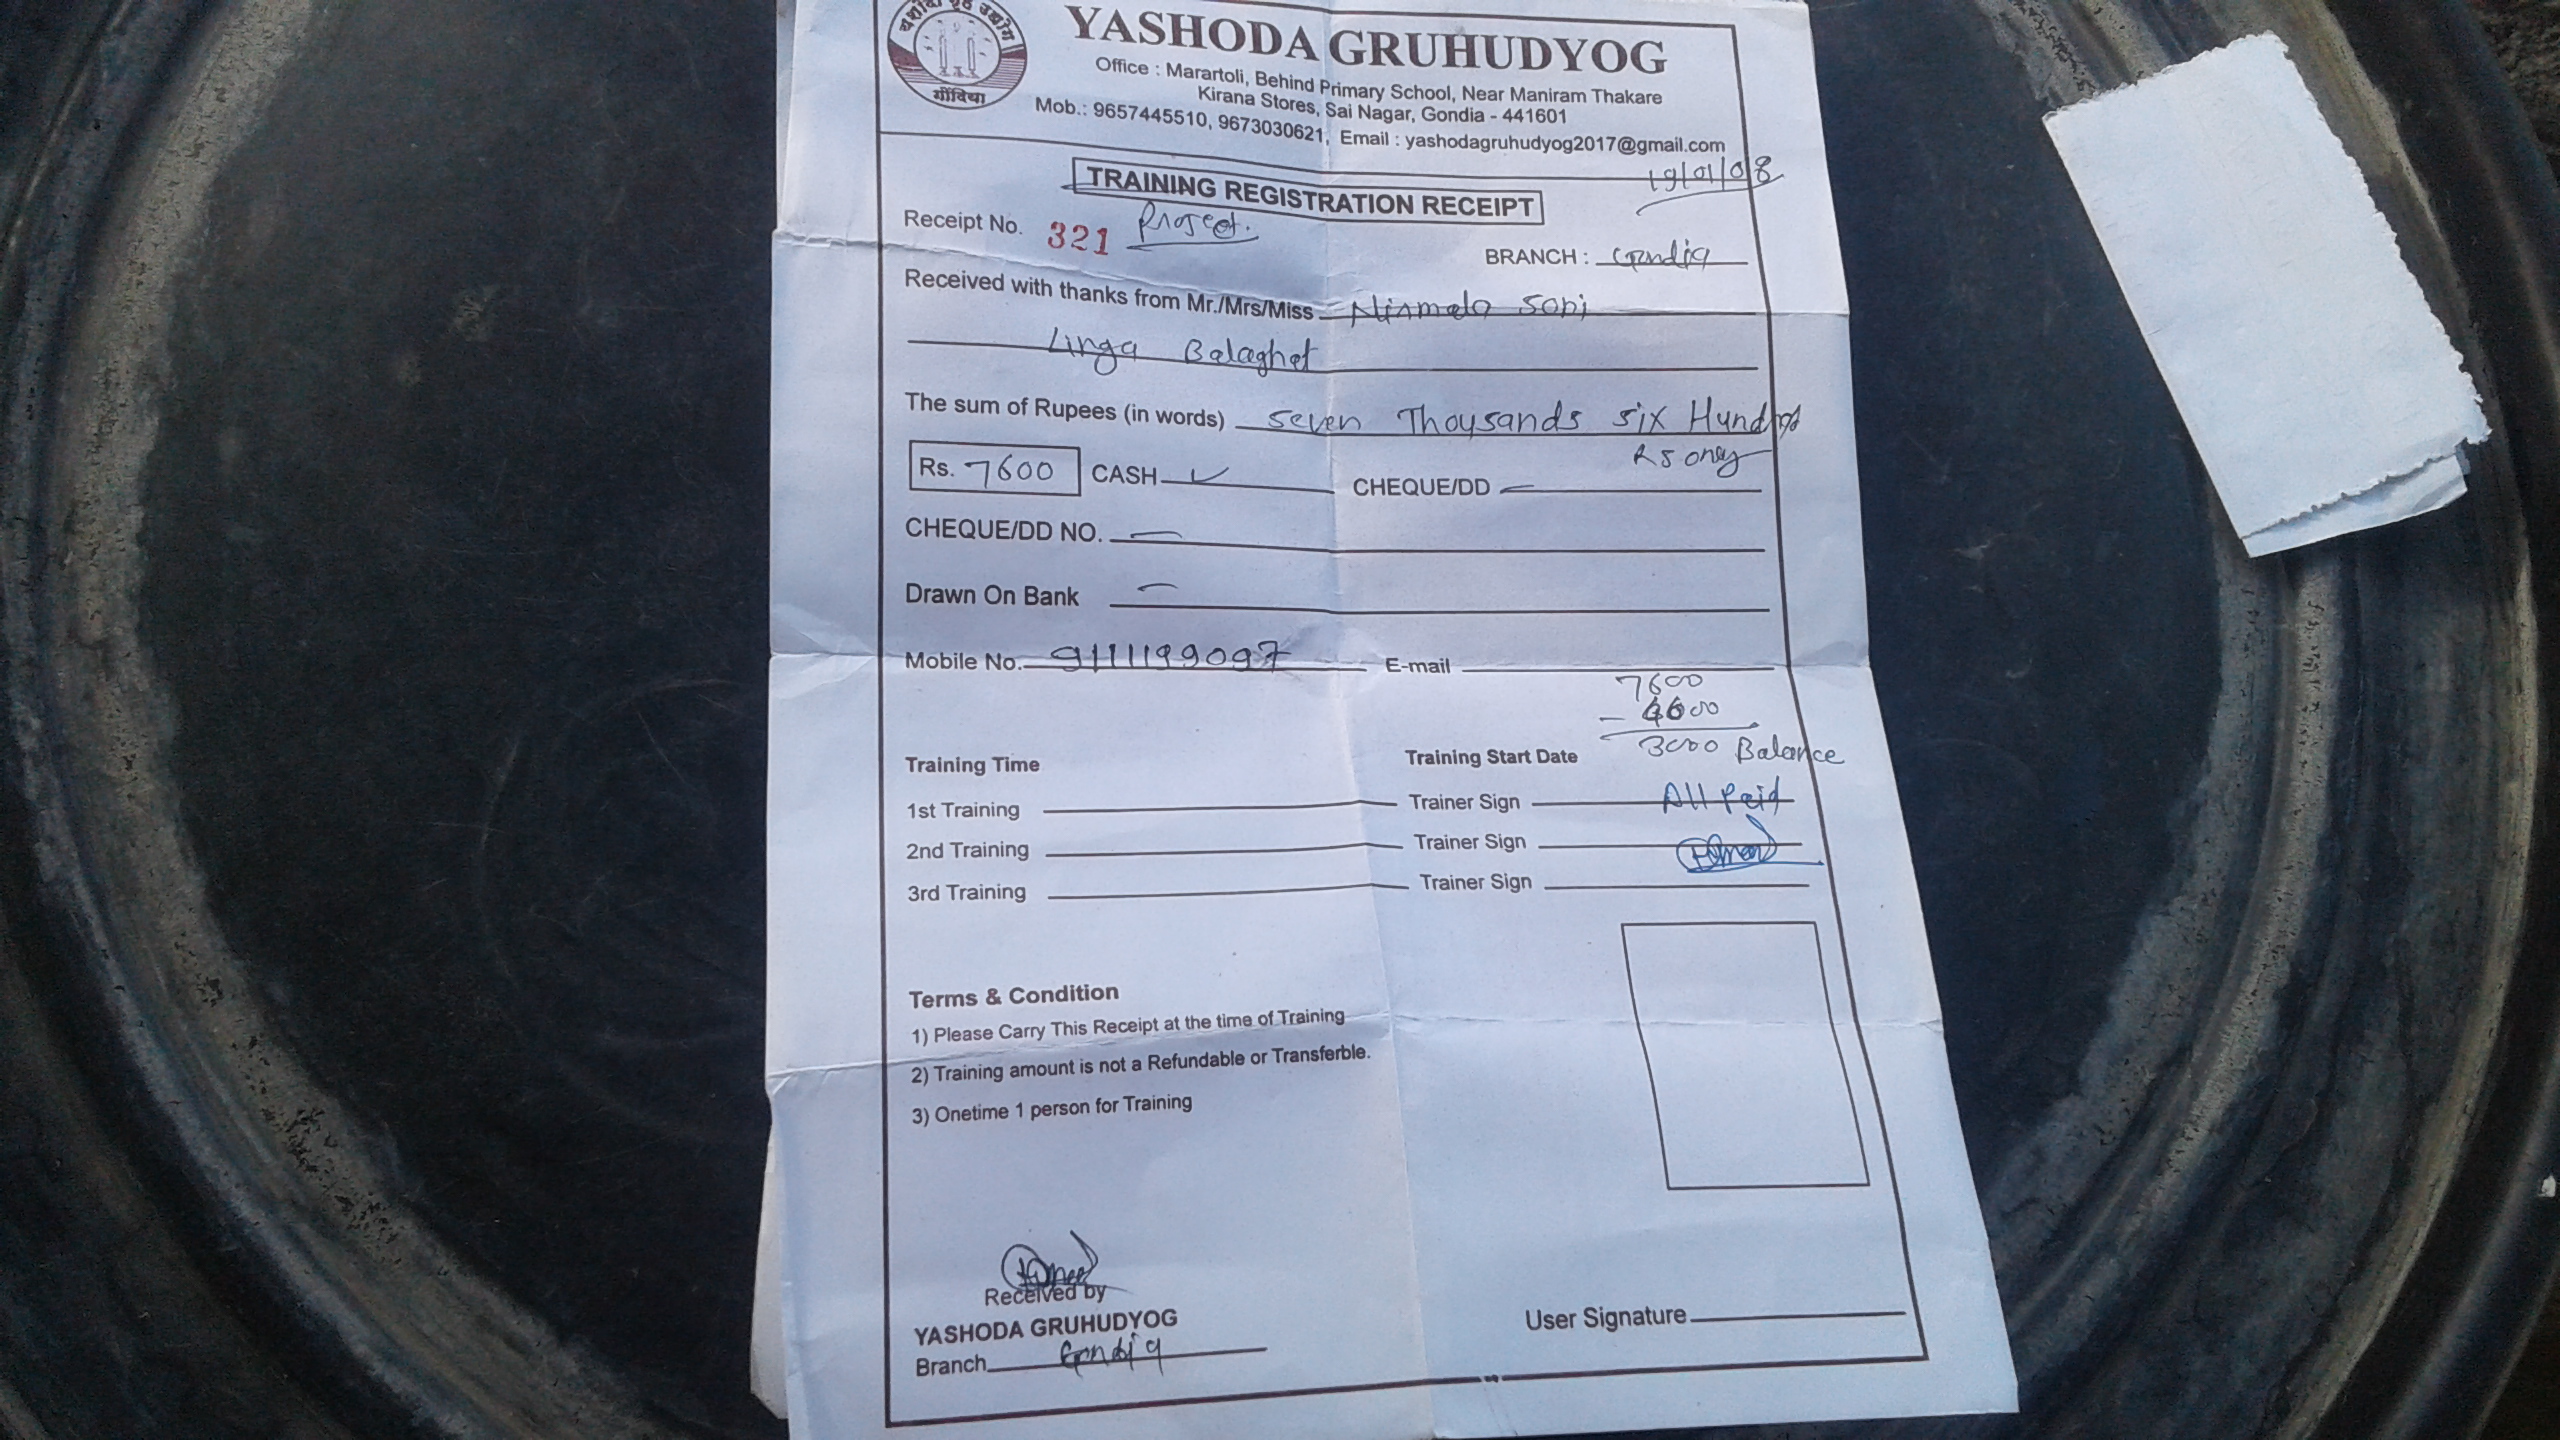 यशोदा गृह उद्योग
गोंदिया
YASHODA GRUHUDYOG
Office : Marartoli, Behind Primary School, Near Maniram Thakare
Kirana Stores, Sai Nagar, Gondia - 441601
Mob.: 9657445510, 9673030621, Email : yashodagruhudyog2017@gmail.com
19/01/08
TRAINING REGISTRATION RECEIPT
Receipt No. 321 Project.
BRANCH : Gondia
Received with thanks from Mr./Mrs/Miss Nirmala Soni
Linga Balaghat
The sum of Rupees (in words) Seven Thousands Six Hundred
Rs only
Rs. 7600 CASH ✓ CHEQUE/DD —
CHEQUE/DD NO. —
Drawn On Bank —
Mobile No. 9111199097 E-mail
7600
- 4600
3000 Balance
Training Time Training Start Date
1st Training Trainer Sign All Paid
2nd Training Trainer Sign
3rd Training Trainer Sign
Terms & Condition
1) Please Carry This Receipt at the time of Training
2) Training amount is not a Refundable or Transferble.
3) Onetime 1 person for Training
Received by
YASHODA GRUHUDYOG
Branch Gondia
User Signature